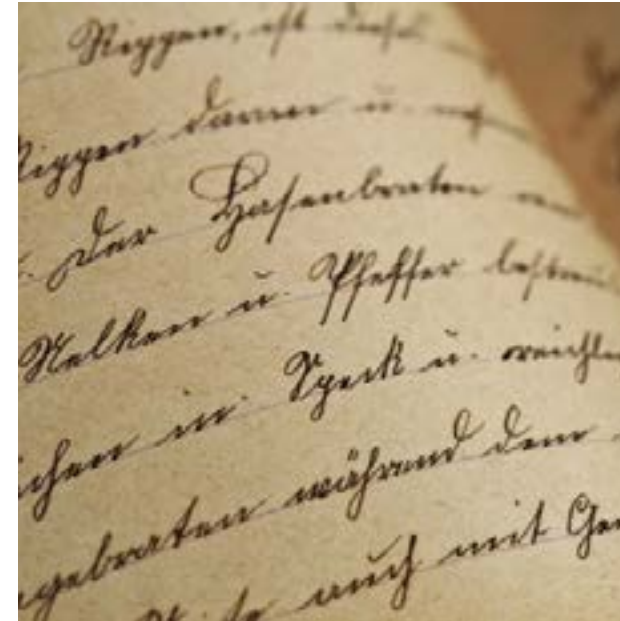 Rippen, ist dieses
Rippen daran u.
Der Hasenbraten
Nelken u. Pfeffer bestreu
chen in Speck u. reichli
gebraten während dem
auch mit